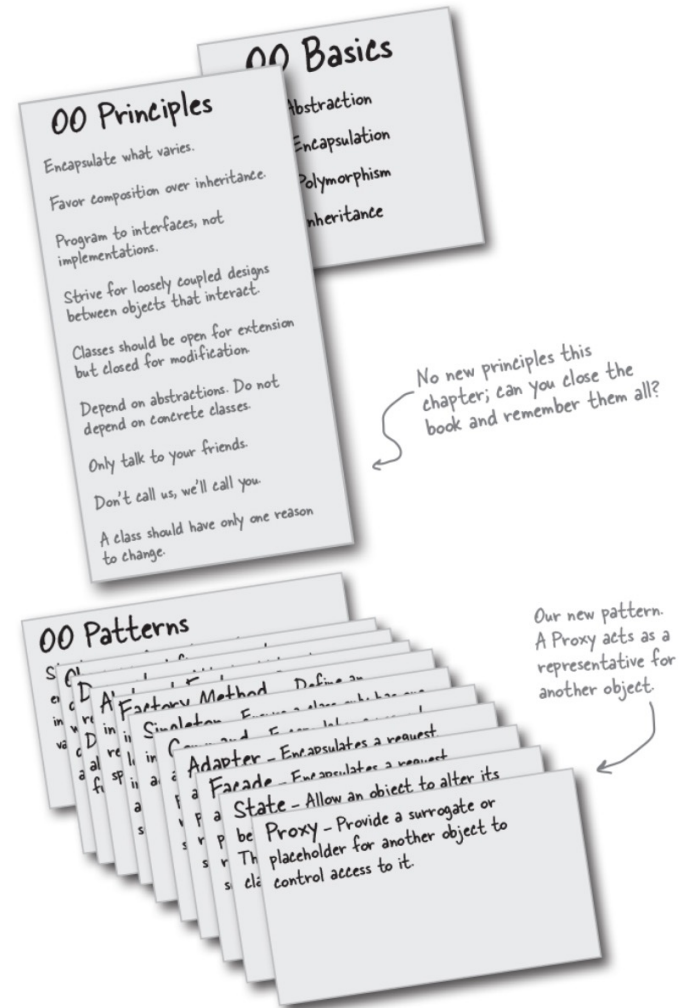 OO Basics
Abstraction
Encapsulation
Polymorphism
Inheritance
OO Principles
Encapsulate what varies.
Favor composition over inheritance.
Program to interfaces, not
implementations.
Strive for loosely coupled designs
between objects that interact.
Classes should be open for extension
but closed for modification.
Depend on abstractions. Do not
depend on concrete classes.
Only talk to your friends.
Don't call us, we'll call you.
A class should have only one reason
to change.
No new principles this
chapter; can you close the
book and remember them all?
OO Patterns
Factory Method - Define an
Singleton
Command
Adapter - Encapsulates a request
Facade - Encapsulates a request
State - Allow an object to alter its
Proxy - Provide a surrogate or
placeholder for another object to
control access to it.
Our new pattern.
A Proxy acts as a
representative for
another object.